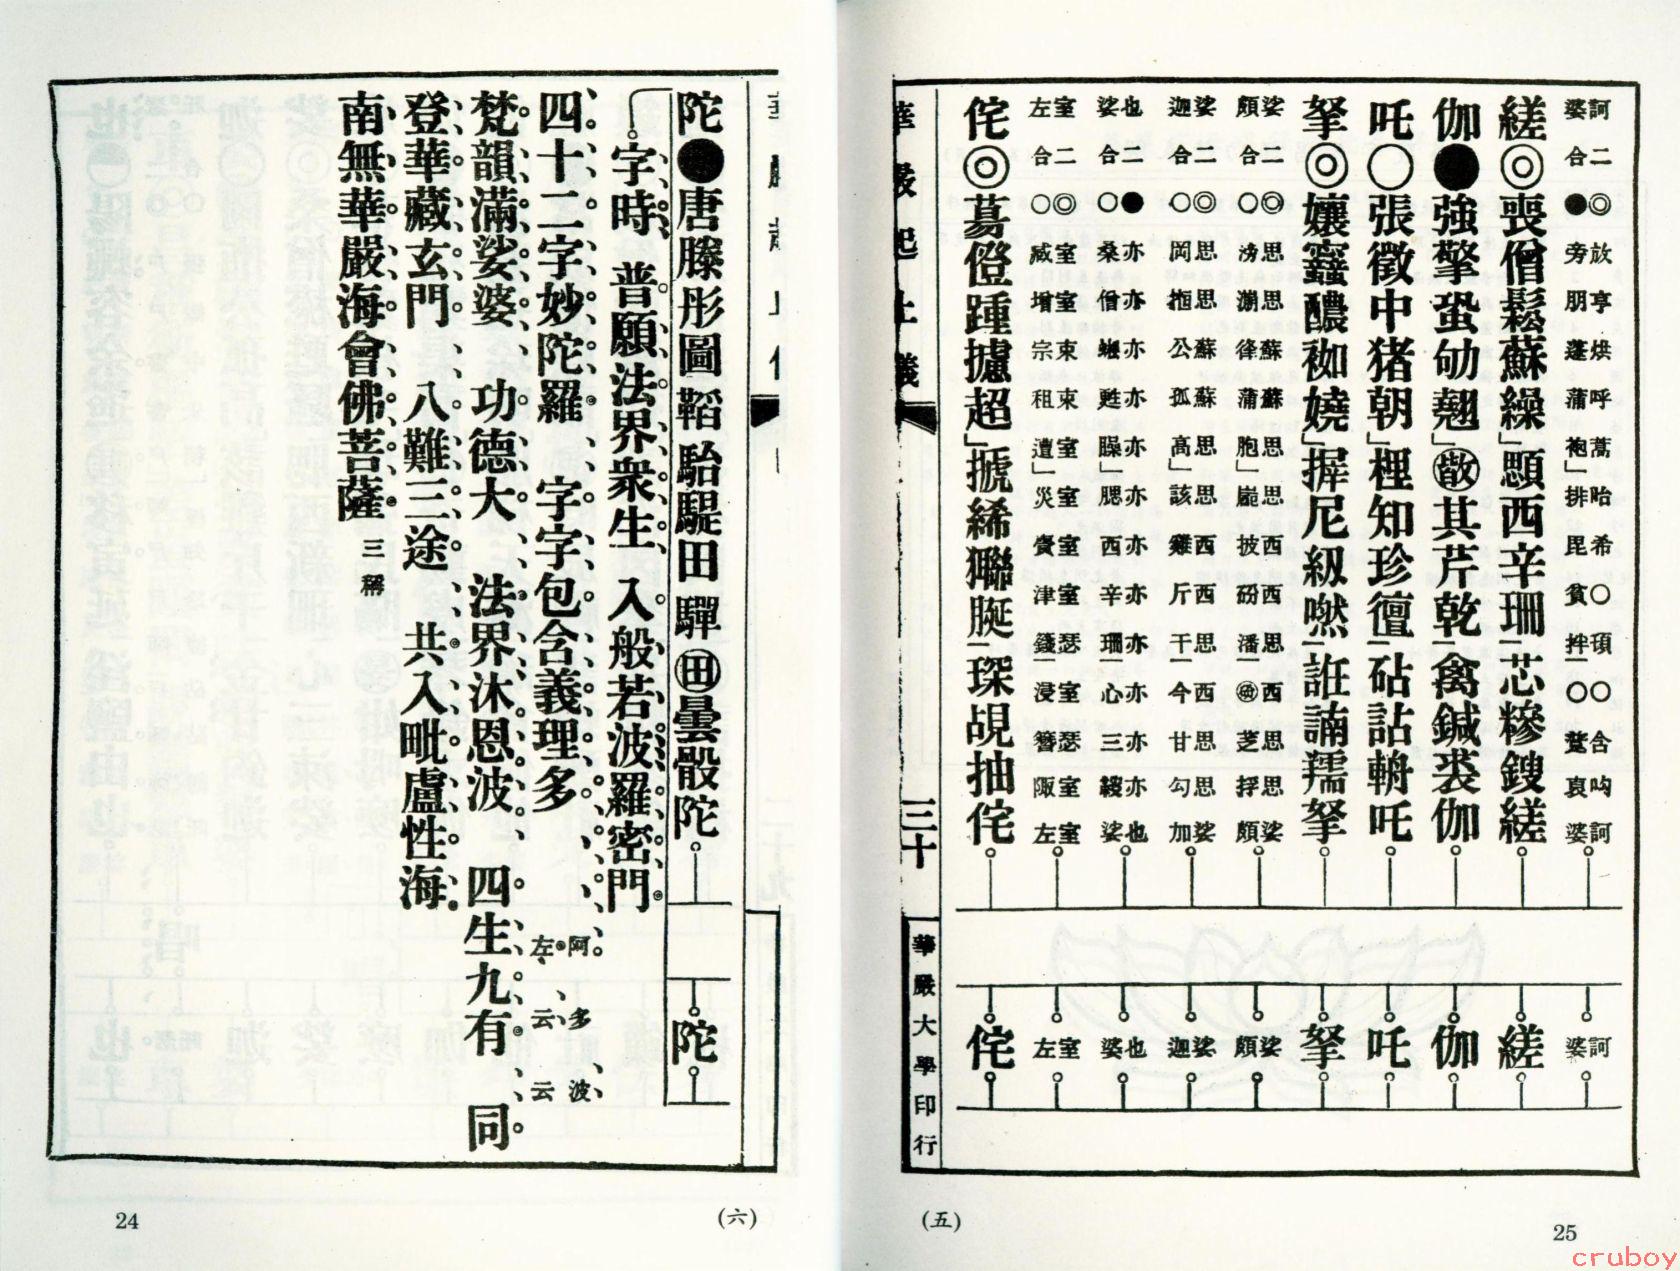 訶二◎放亨烘呼蒿咍希○頊○含呴訶
婆合●旁朋蓬蒲袍」排毘貧拌○蹵裒婆
縒◎喪僧鬆蘇繰」顋西辛珊芯糝鎪縒
伽●強擎蛩劬翹」㪚其芹乾禽鍼裘伽
吒○張徵中猪朝」桯知珍邅砧詀輈吒
拏◎孃𥧬醲袽嬈」搱尼紉嘫誑諵羺拏
娑二◎思思蘇蘇思思西西思西思思娑
頗合○滂漰徬蒲胞」㠑披砏潘芝捊頗
娑二◎思思蘇蘇思思西西思西思思娑
迦合○岡揯公孤高」該雞斤干今甘勾加
也二●亦亦亦亦亦亦亦亦亦亦亦亦也
娑合○桑僧蜙甦臊」腮西辛珊心三鞖娑
室二◎室室束束室室室室瑟室瑟室室
左合○臧增宗租遭」災賫津籛浸簪陬左
侘◎募僜踵攄超」搋絺獮脠琛覘抽侘
訶婆
縒
伽
吒
拏
娑頗
娑迦
也婆
室左
侘
華嚴起止儀
三十
華嚴大學印行
陀●唐滕彤圖鞀駘騠田驒㊉曇骰陀
陀
字時 普願法界眾生 入般若波羅密門
四十二字妙陀羅 字字包含義理多
阿多波
左云云
梵韻滿娑婆 功德大 法界沐恩波 四生九有 同
登華藏玄門 八難三途 共入毗盧性海
南無華嚴海會佛菩薩 三稱
24
(六)
(五)
25
cruboy